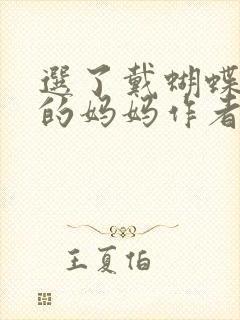 選了戴蝴蝶
的妈妈作者
王夏伯